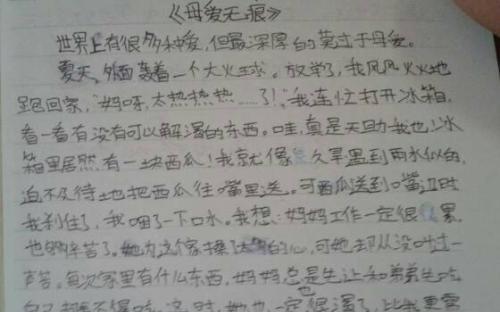 《母爱无痕》
世界上有很多种爱,但最深厚的莫过于母爱。
夏天,外面轰着一个大火球。放学了,我风风火火地
跑回家,“妈呀,太热热热……了!”我连忙打开冰箱,
看一看有没有可以解渴的东西。哇,真是天助我也!冰
箱里居然有一块西瓜!我就像久旱遇到雨水似的,
迫不及待地把西瓜往嘴里送。可西瓜送到嘴边时
我刹住了,我咽了一下口水。我想:妈妈工作一定很累,
也够辛苦了。她为这个家操了的心,可她却从没叫过一
声苦。每次家里有什么东西,妈妈总是先让和弟弟先吃
自己都不得吃。这时,她也一定很渴了,比我更需